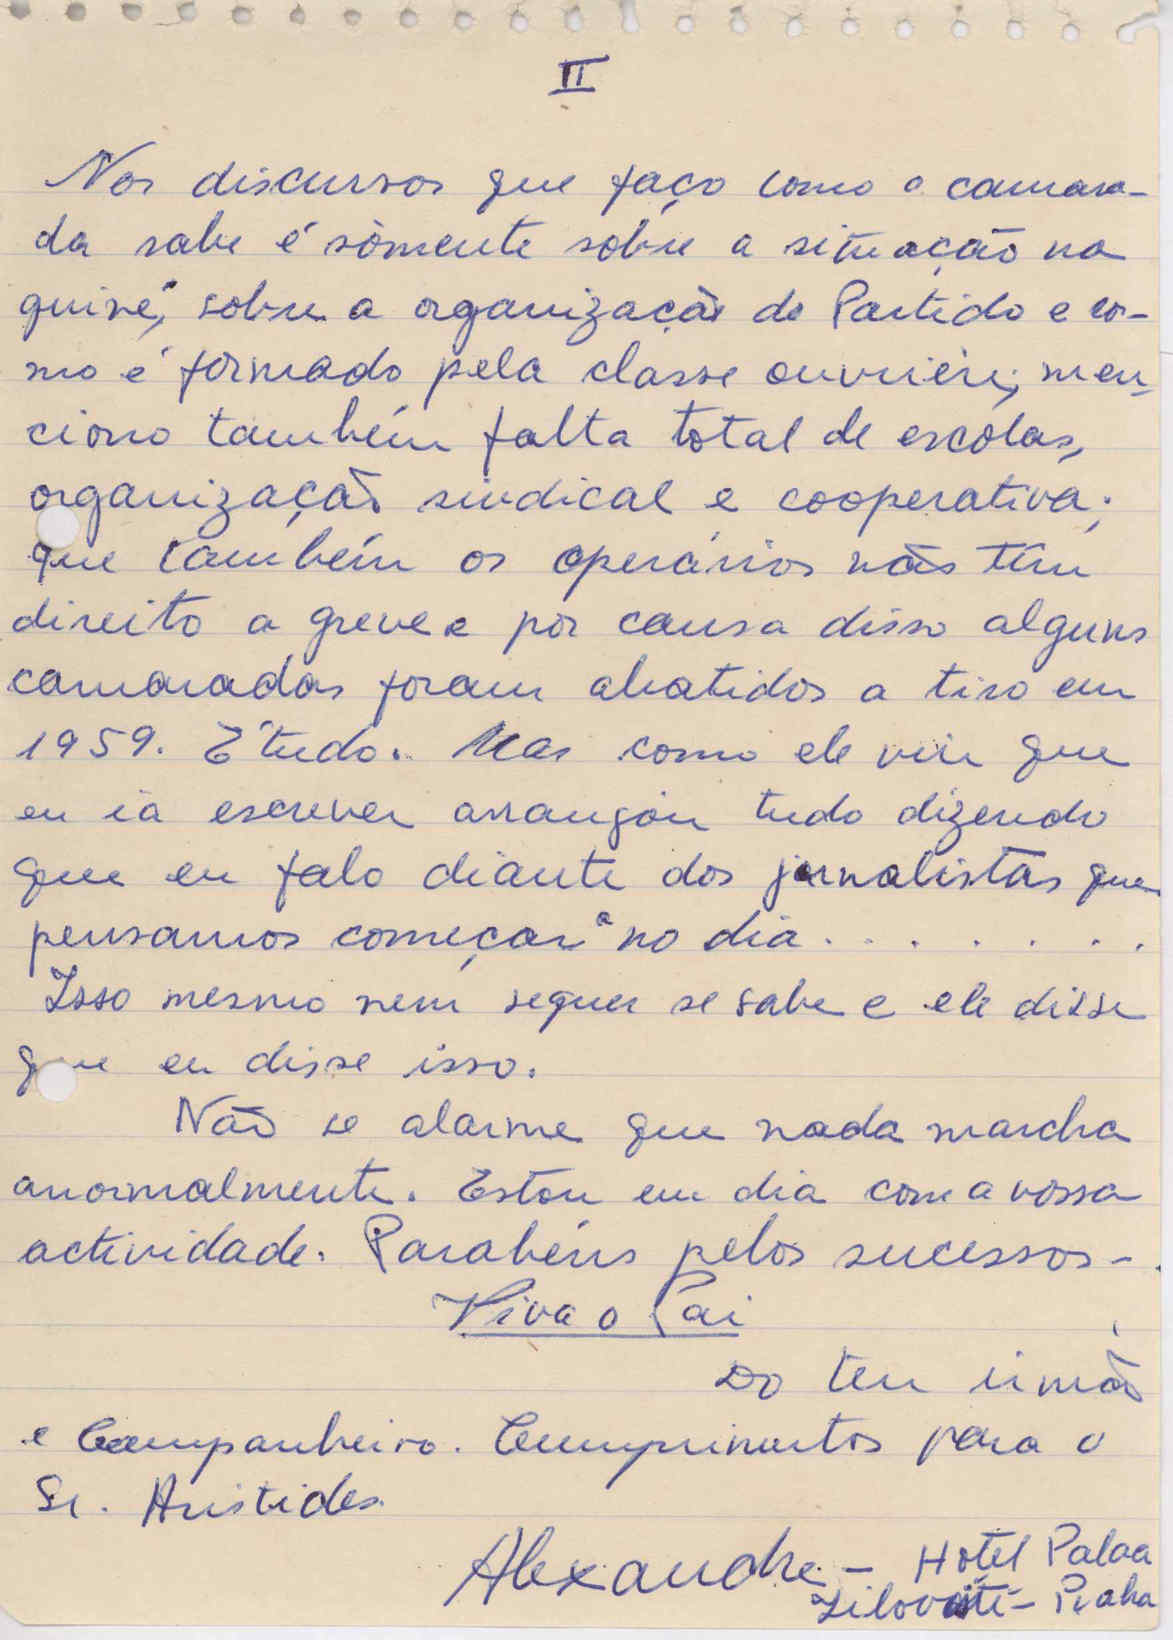 II
Nos discursos que faço como o camara-
da sabe é sòmente sobre a situação na
guiné, sobre a organização do Partido e co-
mo é formado pela classe ouvrière, men-
ciono também falta total de escolas,
organização sindical e cooperativa;
que também os operários não têm
direito a greve e por causa disso alguns
camaradas foram abatidos a tiro em
1959. É tudo. Mas como ele viu que
eu ia escrever arranjou tudo dizendo
que eu falo diante dos jornalistas que
pensamos começar a no dia . . . . . . .
Isso mesmo nem sequer se sabe e ele disse
que eu disse isso.
Não se alarme que nada marcha
anormalmente. Estou em dia com a vossa
actividade. Parabéns pelos sucessos -.
Viva o Pai
Do teu irmão
e Companheiro. Cumprimentos para o
Sr. Aristides.
Alexandre - Hotel Palaa
- Praha